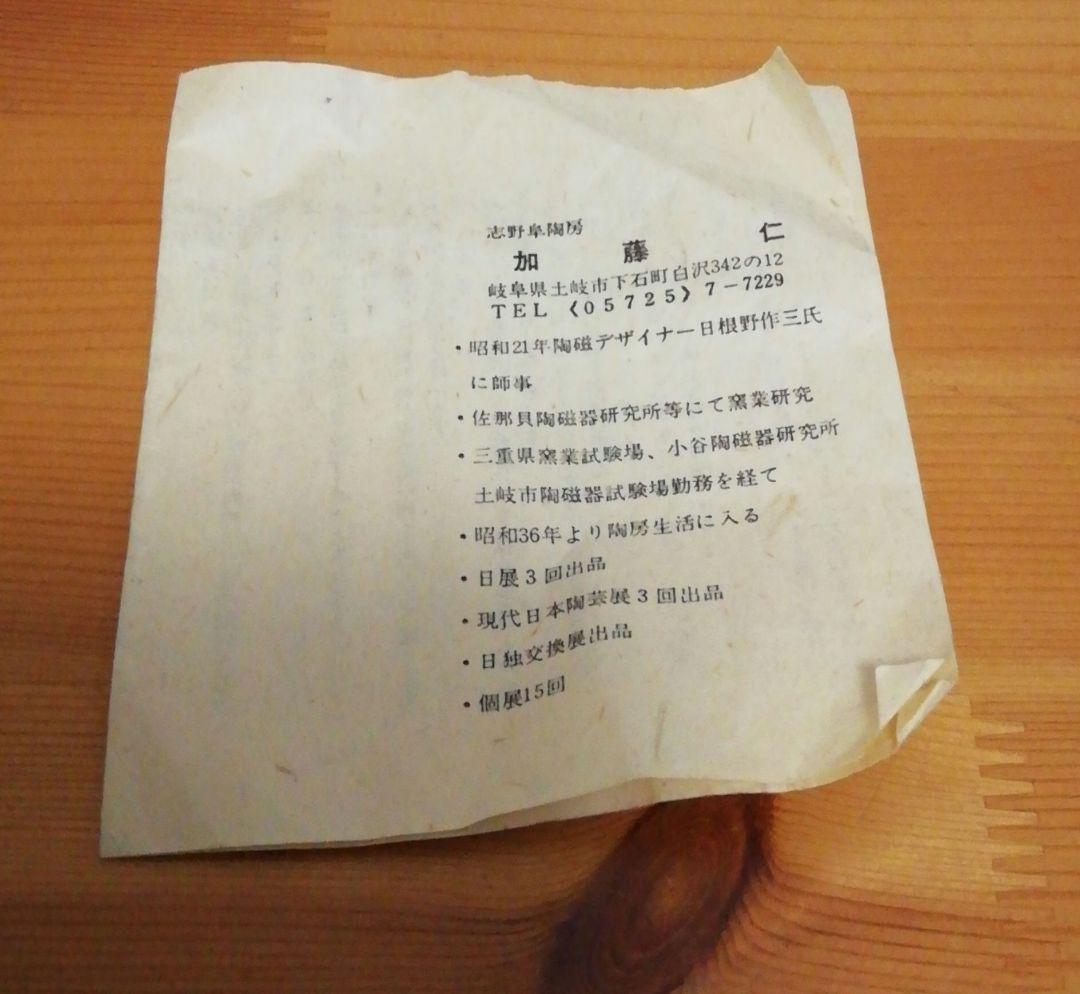 志野阜陶房
加藤仁
岐阜県土岐市下石町白沢342の12
TEL 〈05725〉7-7229
・昭和21年陶磁デザイナー日根野作三氏
に師事
・佐那具陶磁器研究所等にて窯業研究
・三重県窯業試験場、小谷陶磁器研究所
土岐市陶磁器試験場勤務を経て
・昭和36年より陶房生活に入る
・日展3回出品
・現代日本陶芸展3回出品
・日独交換展出品
・個展15回